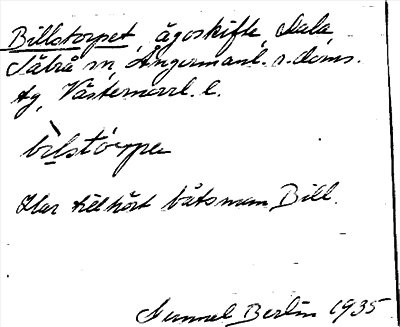 Billstorpet, ägoskifte, Dala
Säbrå sn, Ångermanl. s. doms.
tg, Västernorrl. l.
bilstórpe
Har tillhört båtsman Bill.
Gunnel Berlin 1935